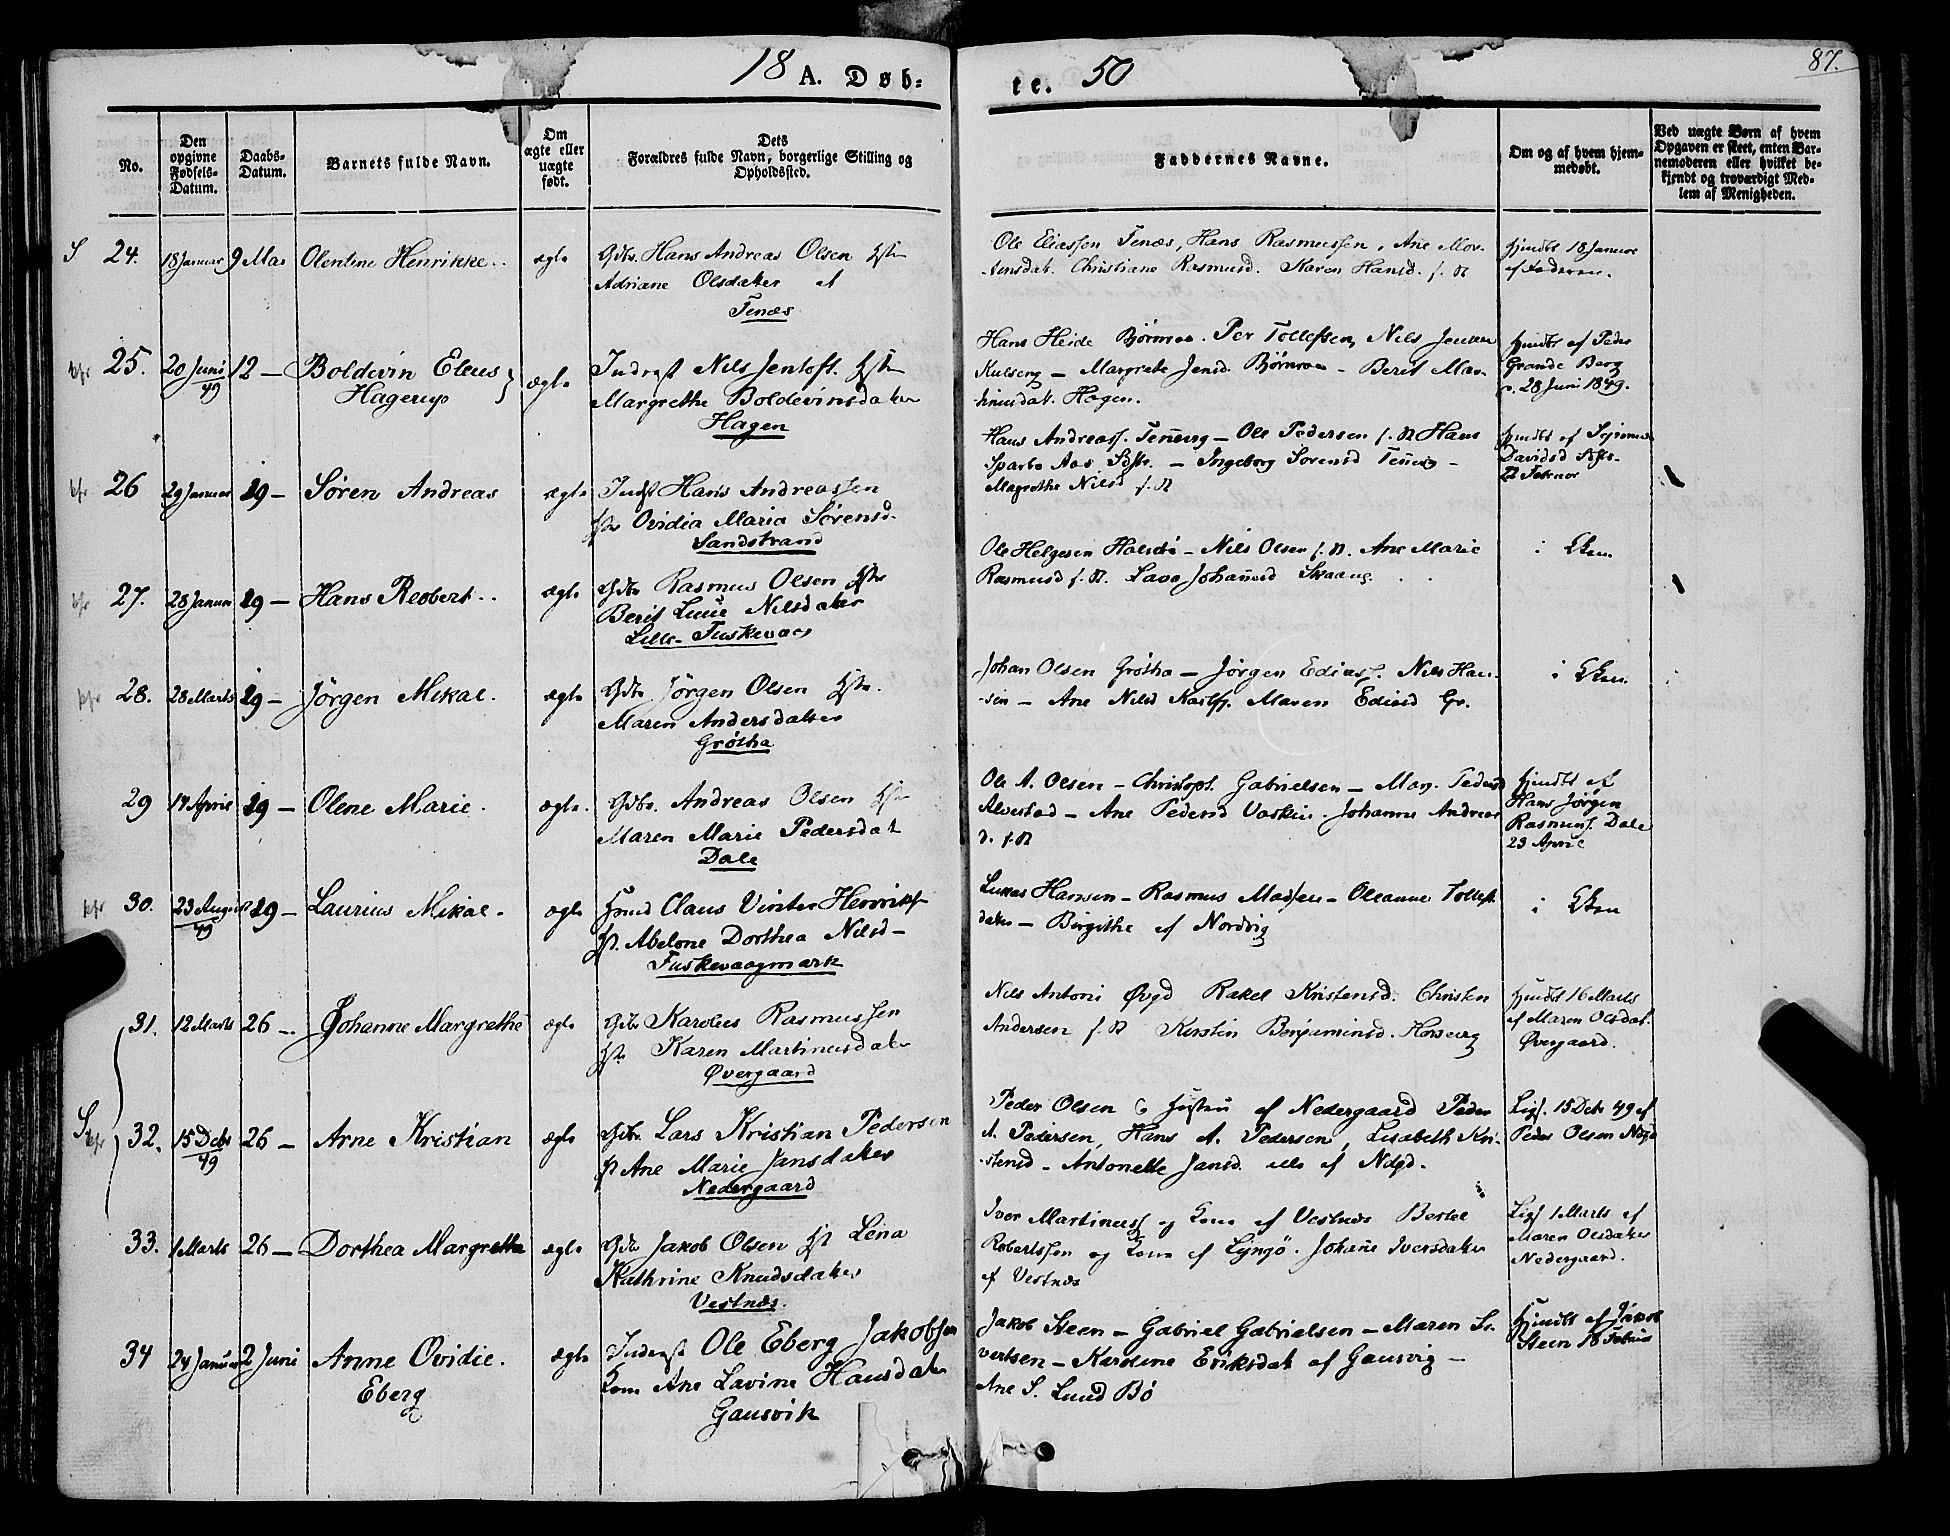 18 A. Døb: te. 50
87.
No.
Den opgivne Fødsels-Datum.
Daabs-Datum.
Barnets fulde Navn.
Om ægte eller uægte født.
Dets Forældres fulde Navn, borgerlige Stilling og Opholdssted.
Faddernes Navne.
Om og af hvem hjemmedøbt.
Ved uægte Børn af hvem Opgaven er skeet, enten Barnemoderen eller hvilket bekjendt og troværdigt Medlem af Menigheden.
S 24. 18 Januar 9 Mai Olentine Henrikke. ægte Gdbr. Hans Andreas Olsen Hstr
Adriane Olsdatter af
Tenæs
Ole Eliassen Tenæs, Hans Rasmussen, Ane Mor-
tensdat. Christiane Rasmusd. Karen Hansd. f. N
hjmdbt 18 Januar
af Faderen.
25. 20 Juni 49 12 — Boldevin Eleus
Hagerup
ægte
Inderst Nils Jentoft Hstr
Margrethe Boldevinsdatter
Hagen
Hans Heide Bjørnraa. Per Tollefsen, Nils
— Margrete Jensd. Bjørnraa — Berit Mar-
tinusdat. Hagen.
hjmdbt af Peder
Grande Berg
28 Juni 1849.
26 29 Januar 19 — Søren Andreas ægte Indst Hans Andreassen
Hstr Ovidia Maria Sørensd.
Sandstrand
Hans Andreass. Tennevig — Ole Pedersen f. N Hans
Sparbo Aas — Ingeborg Sørensd Tennevig —
Magrethe Nilsd f. N
hjmdbt af
Davidsd
27. 28 Januar 19 — Hans Reobert. ægte Gdbr Rasmus Olsen Hstr
Berit Nilsdatter
Lille-Fuskevaag
Ole Helgesen — Nils Olsen f. N. Ane Marie
Rasmusd f. N. Johannesd
i Kken
28. 28 Marts 19 — Jörgen Mikal. ægte Gdbr Jörgen Olsen Hstr.
Maren Andersdatter
Grötha
Johan Olsen Grötha — Jørgen Ediass. Nils Han-
sen — Ane Nilsd Maren Ediasd Gr.
i Kken
29 14 April 19 — Olene Marie. ægte. Gdbr. Andreas Olsen Hstr
Maren Marie Pedersdat
Dale
Ole A. Olsen — Christoph. Gabrielsen — Mar. Pedersd
Alvestad — Ane Pedersd Johanne Andreas
d. f. N
hjmdbt af
Hans Jørgen
Rasmuss. Dale
23 April
30. 23 August 49 19 — Laurius Mikal. ægte Hmd Claus Vinter Henriks
H. Abelone Dorthea Nilsd —
Fuskevaagmark
Lukas Hansen — Rasmus Madsen — Oleanne Tollefs-
datter — Birgithe af Nordvig
i Kken
31. 12 Marts 26 — Johanne Margrethe ægte Gdbr Karolius Rasmussen
Hstr Karen Martinusdatter
Øvergaard
Nils Antoni Øvgd Rakel Kristensd. Christen
Andersen f. N Kerstin Benjaminsd.
hjmdbt 16 Marts
af Maren Olsdat.
Øvergaard.
S 32. 15 Decbr 49 26 — Arne Kristian ægte Gdbr. Lars Kristian Pedersen
H Ane Marie Jansdatter
Nedergaard
Peder Olsen & Hustru af Nedergaard Peder
A. Pedersen, Hans A. Pedersen, Lisabeth Kri-
stensd — Antonette Jansd. alle af Ndgd.
Lig. 15 Decbr 49 af
Peder Olsen Ndgd
33. 1 Marts 26 — Dorthea Margrethe ægte Gdbr Jakob Olsen H Lena
Kathrine Knudsdatter
Vestnæs.
Iver Martinuss og Kone af Vestnæs Bertel
Robertssen og Kone af Lyngö. Johanne Iversdatter
af Vestnæs
Lig. 1 Marts af
Maren Olsdatter
Nedergaard.
34 24 Januar 2 Juni Anne Ovidie.
Eberg
ægte
Inderst Ole Eberg Jakobsen
Kone Ane Lavine Hansdatter
Gausvik
Jakob Steen — Gabriel Gabrielsen — Maren Si-
vertsen — Karoline Eriksdat af Gausvig —
Ane S. Lund Bö
Hjmdbt af Jakob
Steen 18 Februar